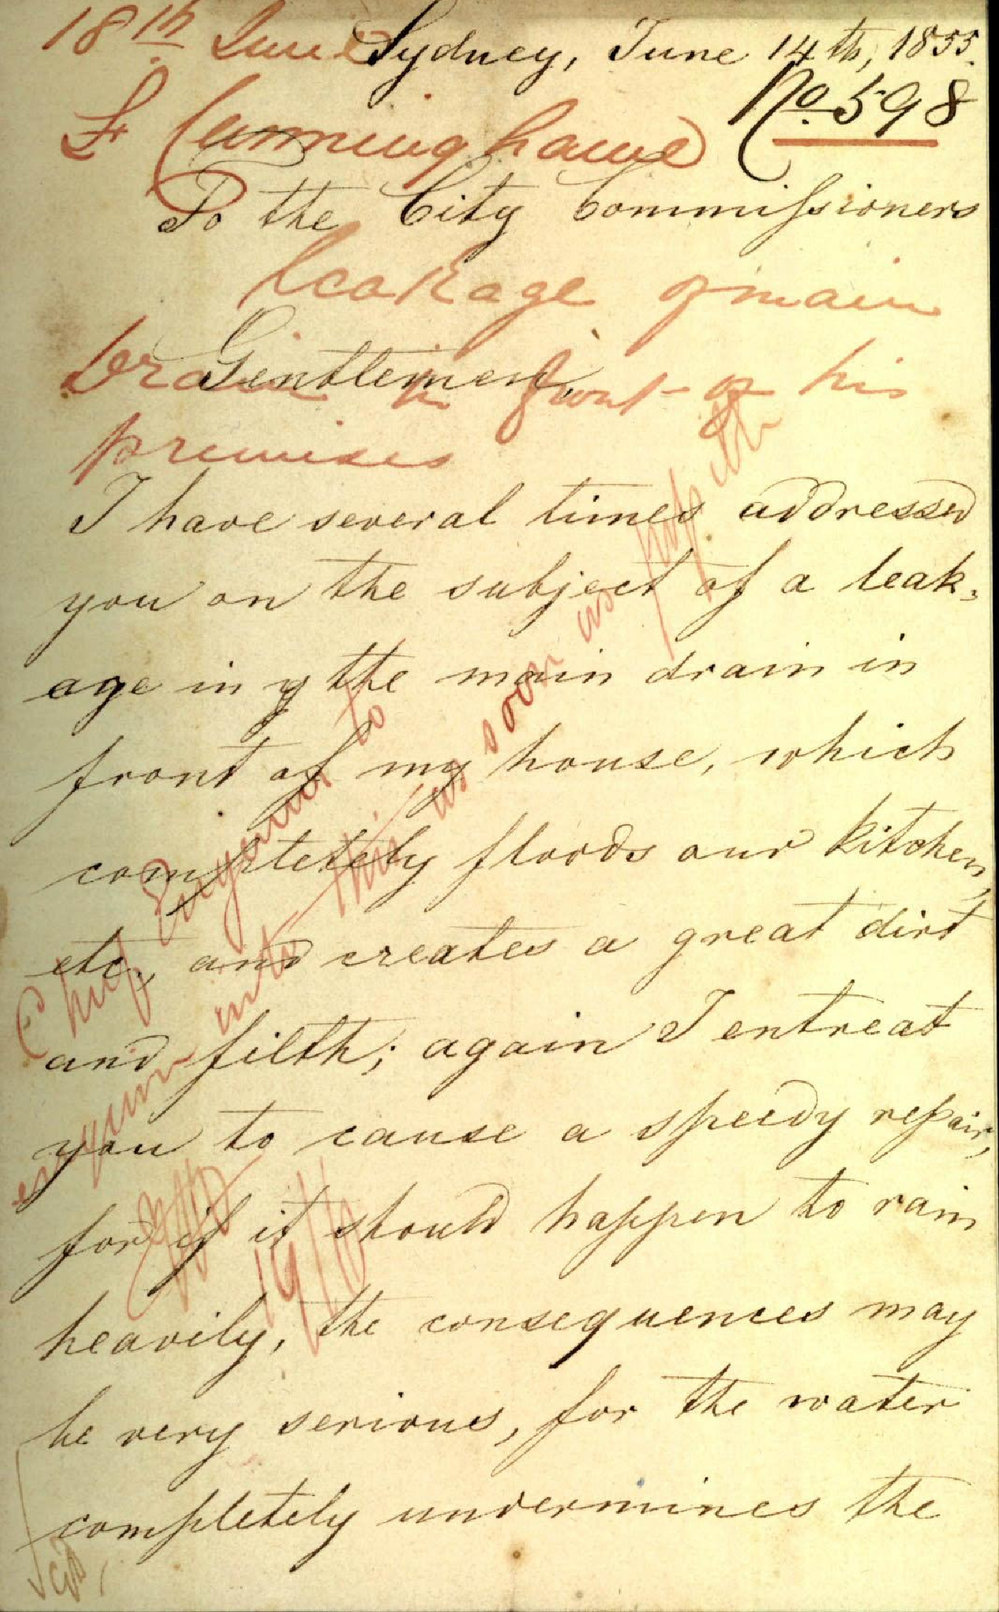 18th June
Sydney, June 14th, 1855.
No. 598
Cunninghame
To the City Commissioners
leakage of main
drain in front of his
premises
Gentlemen,
I have several times addressed
you on the subject of a leak-
age in y the main drain in
front of my house, which
completely floods our kitchen,
etc, and creates a great dirt
and filth; again I entreat
you to cause a speedy repair,
for if it should happen to rain
heavily, the consequences may
be very serious, for the water
completely undermines the
Chief Engineer to
enquire into this as soon as
19/6